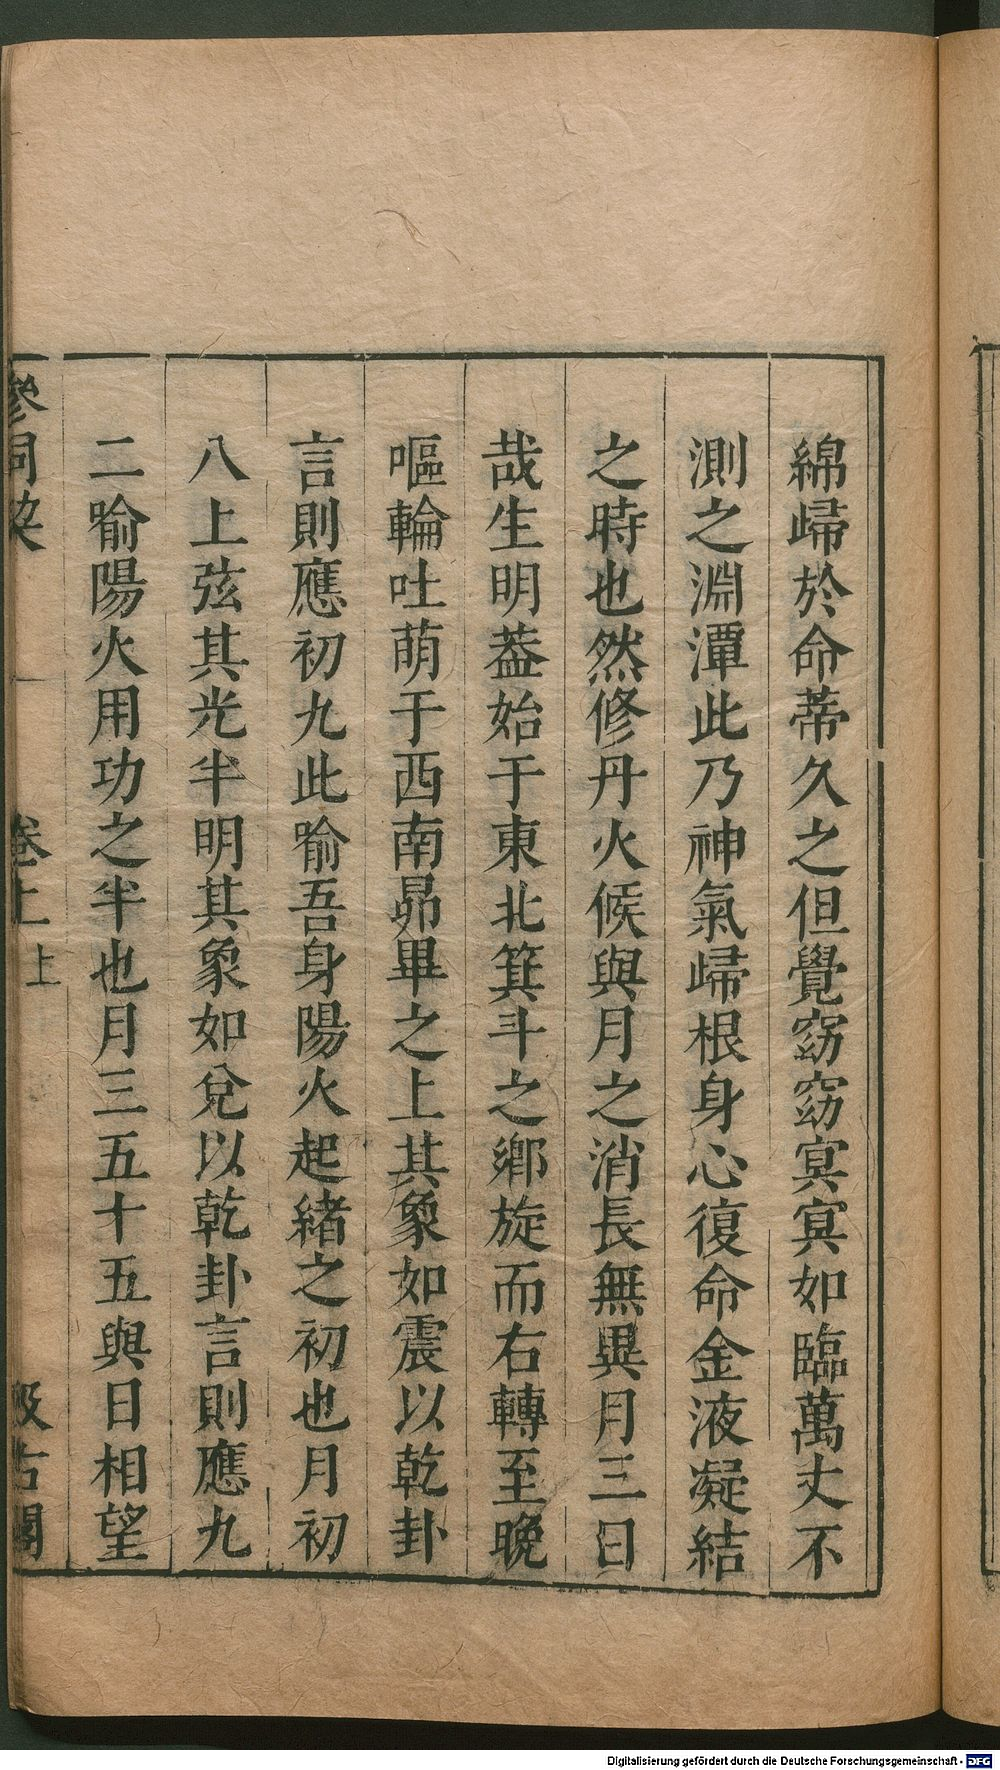 綿歸於命蒂久之但覺窈窈冥冥如臨萬丈不
測之淵潭此乃神氣歸根身心復命金液凝結
之時也然修丹火候與月之消長無異月三日
哉生明葢始于東北箕斗之鄉旋而右轉至晚
嘔輪吐萌于西南昴畢之上其象如震以乾卦
言則應初九此喻吾身陽火起緒之初也月初
八上弦其光半明其象如兌以乾卦言則應九
二喻陽火用功之半也月三五十五與日相望
參同契 卷上上 汲古閣
Digitalisierung gefördert durch die Deutsche Forschungsgemeinschaft - DFG